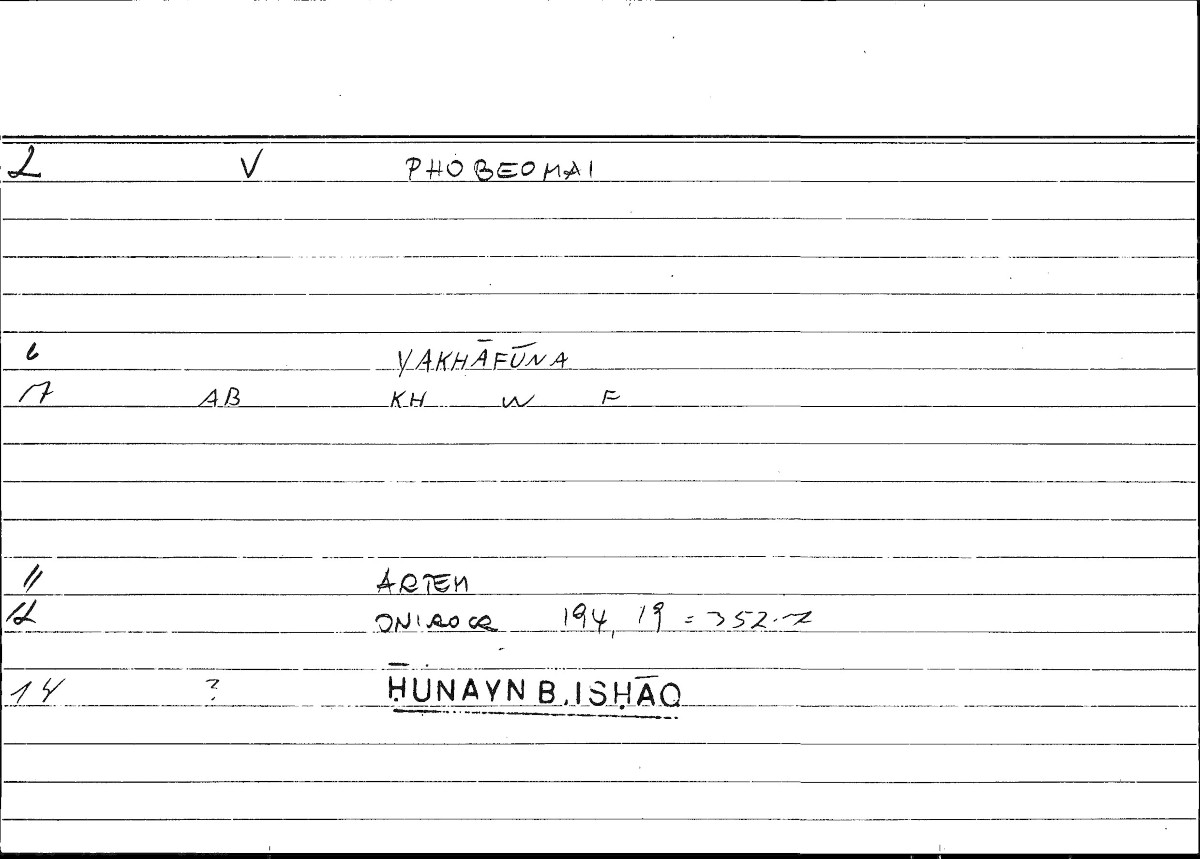 2 V PHOBEOMAI
6 YAKHĀFŪNA
7 AB KH W F
11 ARTEM
12 ONIROCR 194, 19 = 352.7
14 ? ḤUNAYN B. ISḤĀQ